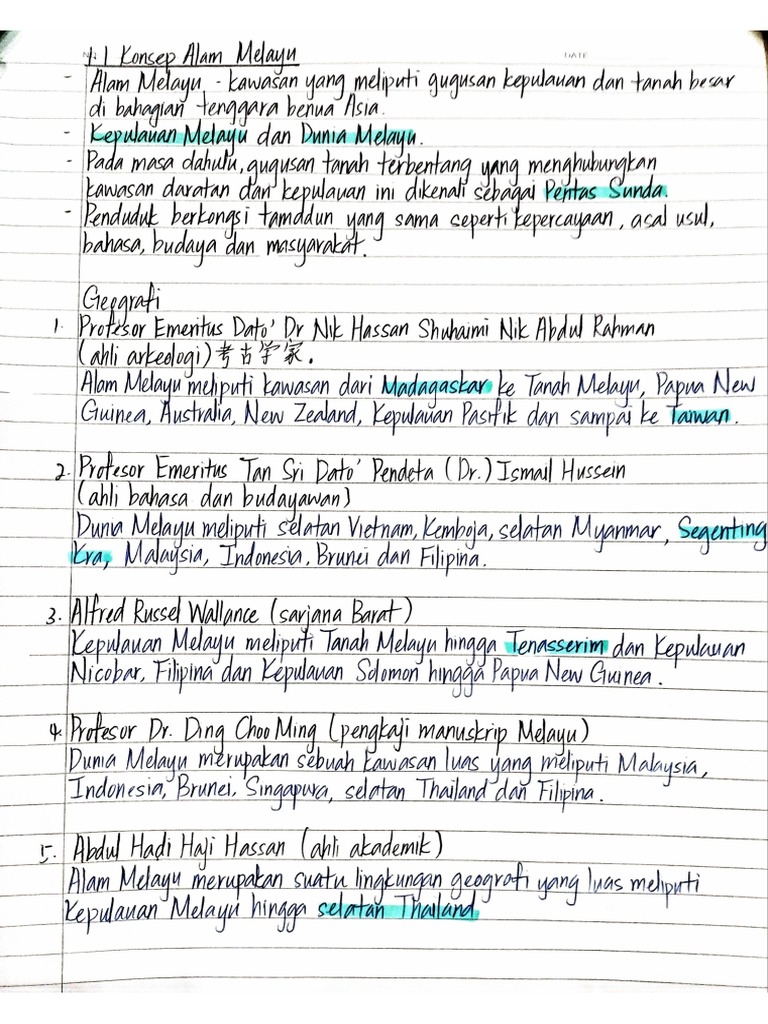 1.1 Konsep Alam Melayu
DATE
- Alam Melayu - kawasan yang meliputi gugusan kepulauan dan tanah besar
di bahagian tenggara benua Asia.
- Kepulauan Melayu dan Dunia Melayu.
- Pada masa dahulu, gugusan tanah terbentang yang menghubungkan
kawasan daratan dan kepulauan ini dikenali sebagai Pentas Sunda.
- Penduduk berkongsi tamddun yang sama seperti kepercayaan, asal usul,
bahasa, budaya dan masyarakat.
Geografi
1. Profesor Emeritus Dato' Dr Nik Hassan Shuhaimi Nik Abdul Rahman
(ahli arkeologi) 考古学家.
Alam Melayu meliputi kawasan dari Madagaskar ke Tanah Melayu, Papua New
Guinea, Australia, New Zealand, Kepulauan Pasifik dan sampai ke Taiwan.
2. Profesor Emeritus Tan Sri Dato' Pendeta (Dr.) Ismail Hussein
(ahli bahasa dan budayawan)
Dunia Melayu meliputi selatan Vietnam, Kemboja, selatan Myanmar, Segenting
Kra, Malaysia, Indonesia, Brunei dan Filipina.
3. Alfred Russel Wallance (sarjana Barat)
Kepulauan Melayu meliputi Tanah Melayu hingga Tenasserim dan Kepulauan
Nicobar, Filipina dan Kepulauan Solomon hingga Papua New Guinea.
4. Profesor Dr. Ding Choo Ming (pengkaji manuskrip Melayu)
Dunia Melayu merupakan sebuah kawasan luas yang meliputi Malaysia,
Indonesia, Brunei, Singapura, selatan Thailand dan Filipina.
5. Abdul Hadi Haji Hassan (ahli akademik)
Alam Melayu merupakan suatu lingkungan geografi yang luas meliputi
Kepulauan Melayu hingga selatan Thailand